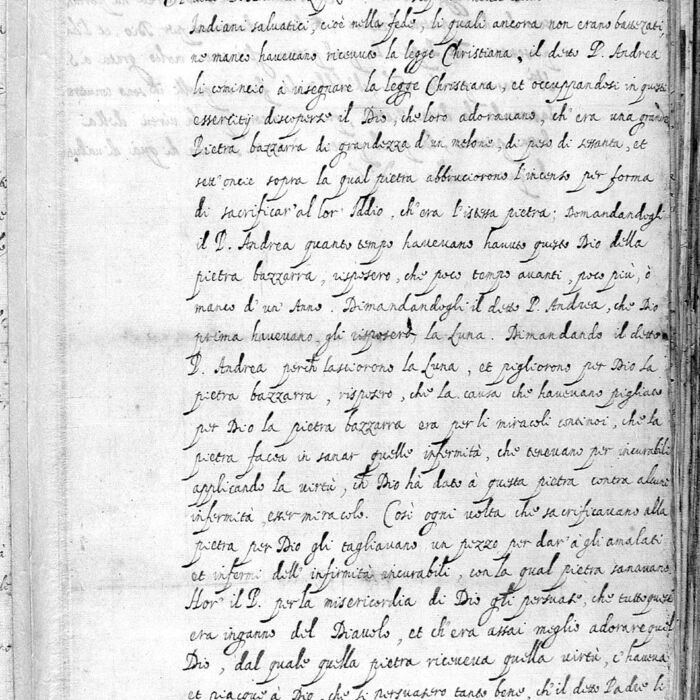 Indiani salvatici, cioè nella fede, li quali ancora non erano batezati,
ne manco havevano ricevuto la legge Christiana, il detto P. Andrea
li cominciò à insegnare la legge Christiana, et occuppandosi in questi
essercitÿ discoperse il Dio, che loro adoravano, ch'era una grande
Pietra bazzarra di grandezza d'un melone, di peso di settanta, et
sett'oncie sopra la qual pietra abbruciorono l'incenso per forma
di sacrificar'al lor' Iddio, ch'era l'istessa pietra; Domandandogli
il P. Andrea quanto tempo havevano havuto questo Dio della
pietra bazzarra, risposero, che poco tempo avanti, poco più, ò
manco d'un'Anno. Dimandandogli il detto P. Andrea, che Dio
prima havevano, gli risposero la Luna. Dimandando il detto
P. Andrea perch lasciorono la Luna, et pigliorono per Dio la
pietra bazzarra, risposero, che la causa che havevano pigliato
per Dio la pietra bazzarra era per li miracoli continoi, che la
pietra facea in sanar quelle infermità, che tenevano per incurabili
applicando la virtù, ch Dio hà dato à questa pietra contra alcune
infermità, esser miracolo. Così ogni volta che sacrificavano alla
pietra per Dio gli tagliavano un pezzo per dar'à gli amalati
et infermi dell'infirmità incurabili, con la qual pietra sanavano
Hor'il P. per la misericordia di Dio gli persuase, che tutto questo
era inganno del Diavolo, et ch'era assai meglio adorare quel
Dio, dal quale quella pietra riceveva quella virtù, c'haveva
et piacque à Dio, che si persuasero tanto bene, ch'il detto Padre li